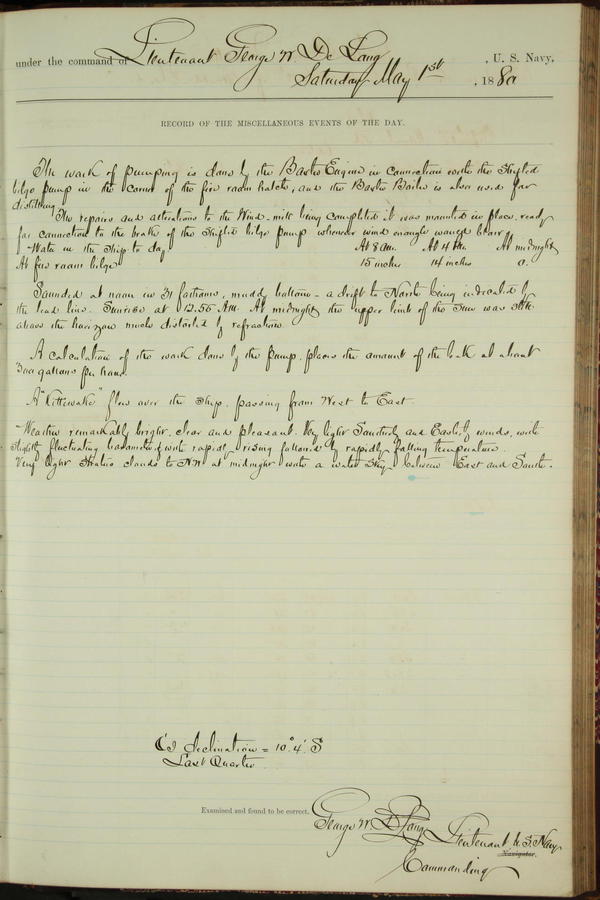 under the command of Lieutenant George W. De Long, U. S. Navy,
Saturday May 1st, 1880
RECORD OF THE MISCELLANEOUS EVENTS OF THE DAY.
The work of pumping is done by the Baxter Engine in connection with the Shifted
bilge pump in the corner of the fire room hatch, and the Baxter Boiler is also used for
distilling.
The repairs and alterations to the Wind-mill being completed it was mounted in place, ready
for connection to the brake of the Shifted bilge pump whenever wind enough
Water in the Ship to day At 8 a.m. At 4 P.M. At midnight
At fire room bilge 15 inches 14 inches 0.
Sounded at noon in 31 fathoms, muddy bottom - a drift to North being indicated by
the lead line. Sunrise at 12.56 A.M. At midnight the upper limb of the Sun was still
above the horizon much distorted by refraction.
A calculation of the work done by the pump, places the amount of the leak at about
300 gallons per hour.
A "Kittiwake" flew over the ship, passing from West to East.
Weather remarkably bright, clear and pleasant. Very light Southerly and Easterly winds, with
slightly fluctuating barometer, with rapidly rising followed by rapidly falling temperature.
Very light Stratus clouds to NW at midnight with a water sky between East and South.
declination = 10° 4' S
Last Quarter
Examined and found to be correct.
George W. De Long Lieutenant U. S. Navy
Navigator.
Commanding